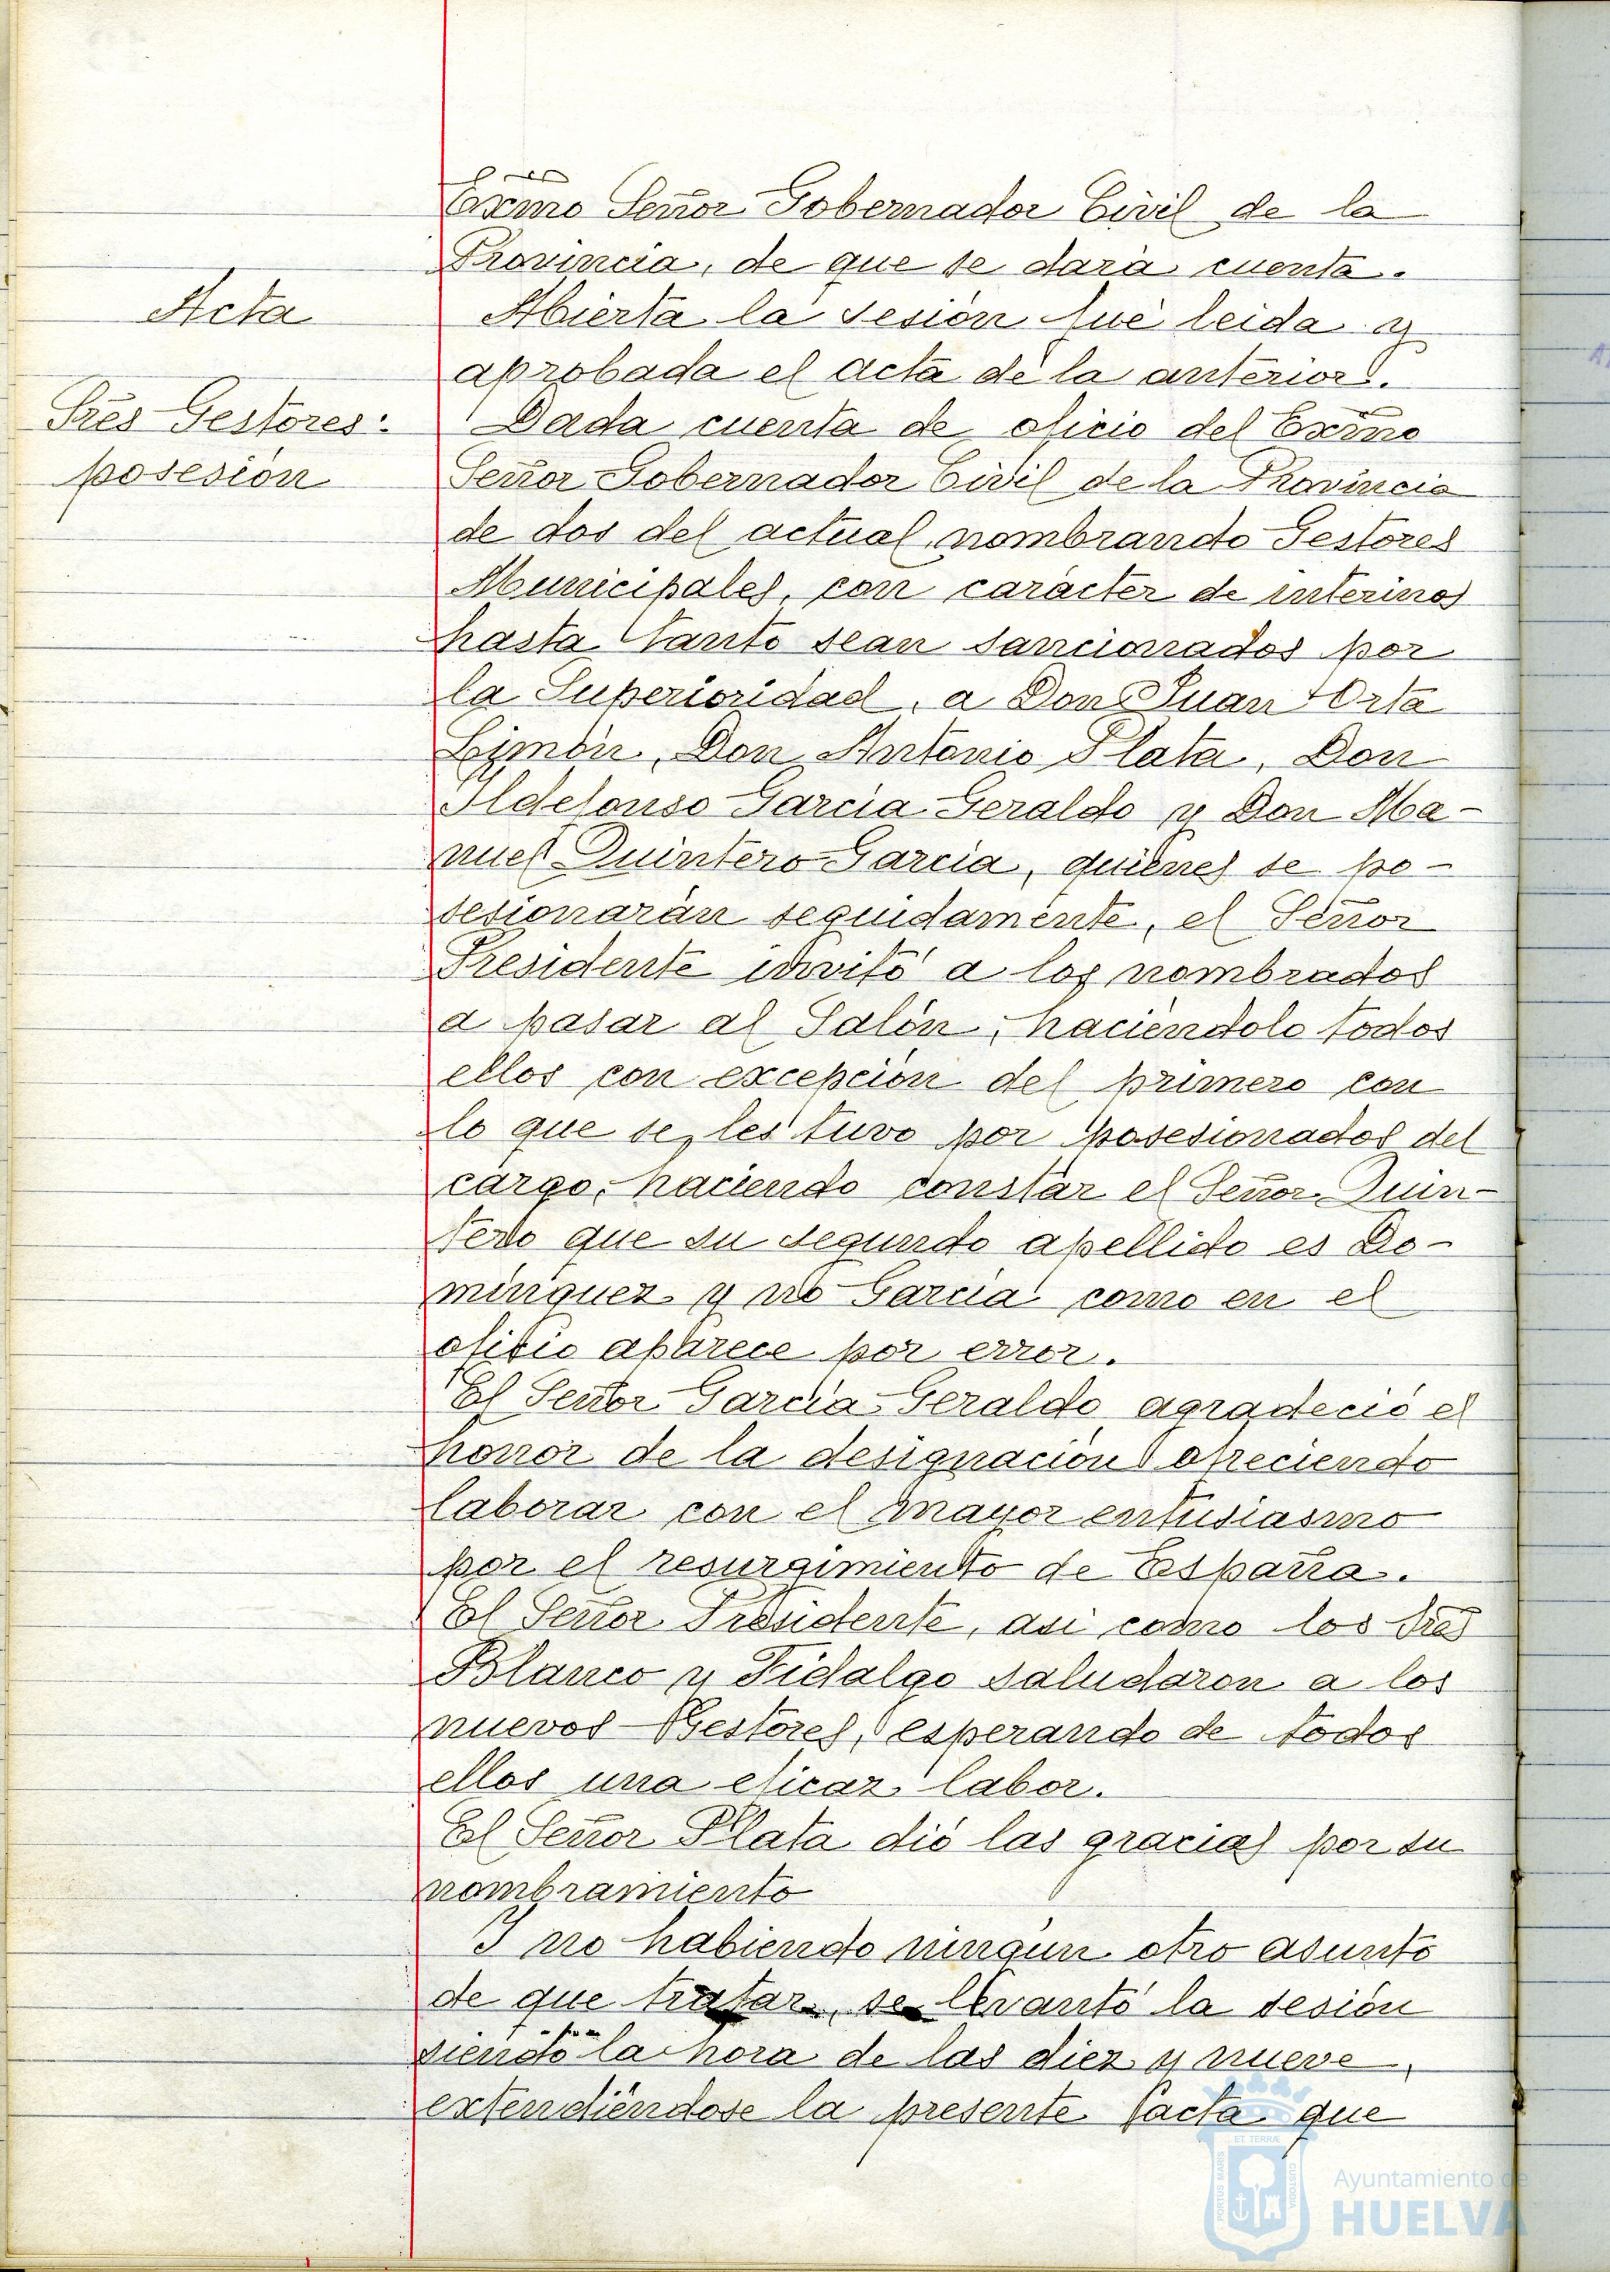 Exmo Señor Gobernador Civil de la
Provincia, de que se dará cuenta.
Acta
Abierta la sesión fué leida y
aprobada el acta de la anterior.
Tres Gestores:
posesión
Dada cuenta de oficio del Exmo
Señor Gobernador Civil de la Provincia
de dos del actual, nombrando Gestores
Municipales, con carácter de interinos
hasta tanto sean sancionados por
la Superioridad, a Don Juan Orta
Limón, Don Antonio Plata, Don
Ildefonso Garcia Geraldo y Don Ma-
nuel Quintero Garcia, quienes se po-
sesionarán seguidamente, el Señor
Presidente invitó a los nombrados
a pasar al Salón, haciéndolo todos
ellos con excepción del primero con
lo que se les tuvo por posesionados del
cargo, haciendo constar el Señor Quin-
tero que su segundo apellido es Do-
minguez y no Garcia como en el
oficio aparece por error.
El Señor Garcia Geraldo agradeció el
honor de la designación ofreciendo
laborar con el mayor entusiasmo
por el resurgimiento de España.
El Señor Presidente, asi como los Sres
Blanco y Fidalgo saludaron a los
nuevos Gestores, esperando de todos
ellos una eficaz labor.
El Señor Plata dió las gracias por su
nombramiento
Y no habiendo ningún otro asunto
de que tratar, se levantó la sesión
siendo la hora de las diez y nueve,
extendiéndose la presente acta que
PORTUS MARIS
ET TERRÆ
CUSTODIA
Ayuntamiento de
HUELVA